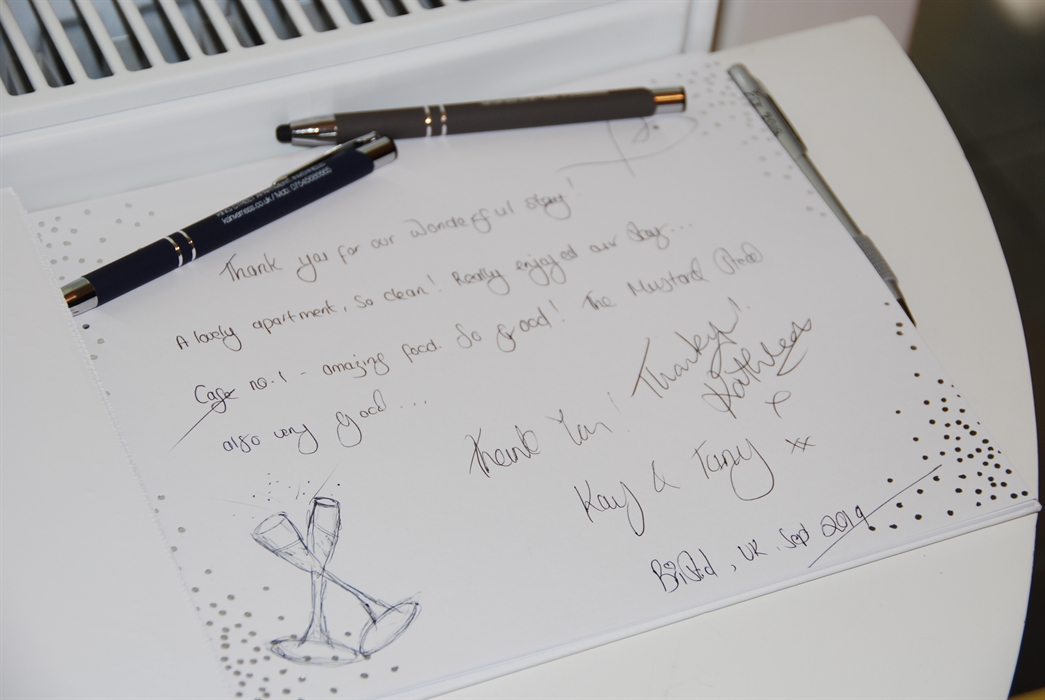 Thank you for our wonderful stay!
A lovely apartment, So clean! Really enjoyed our stay...
Cafe no.1 - amazing food. So good! The Mustard Seed
also very good...
Thankyou!
Kathleen
x
Thank You!
Kay & Tany xx
Bristol, UK, Sept 2019